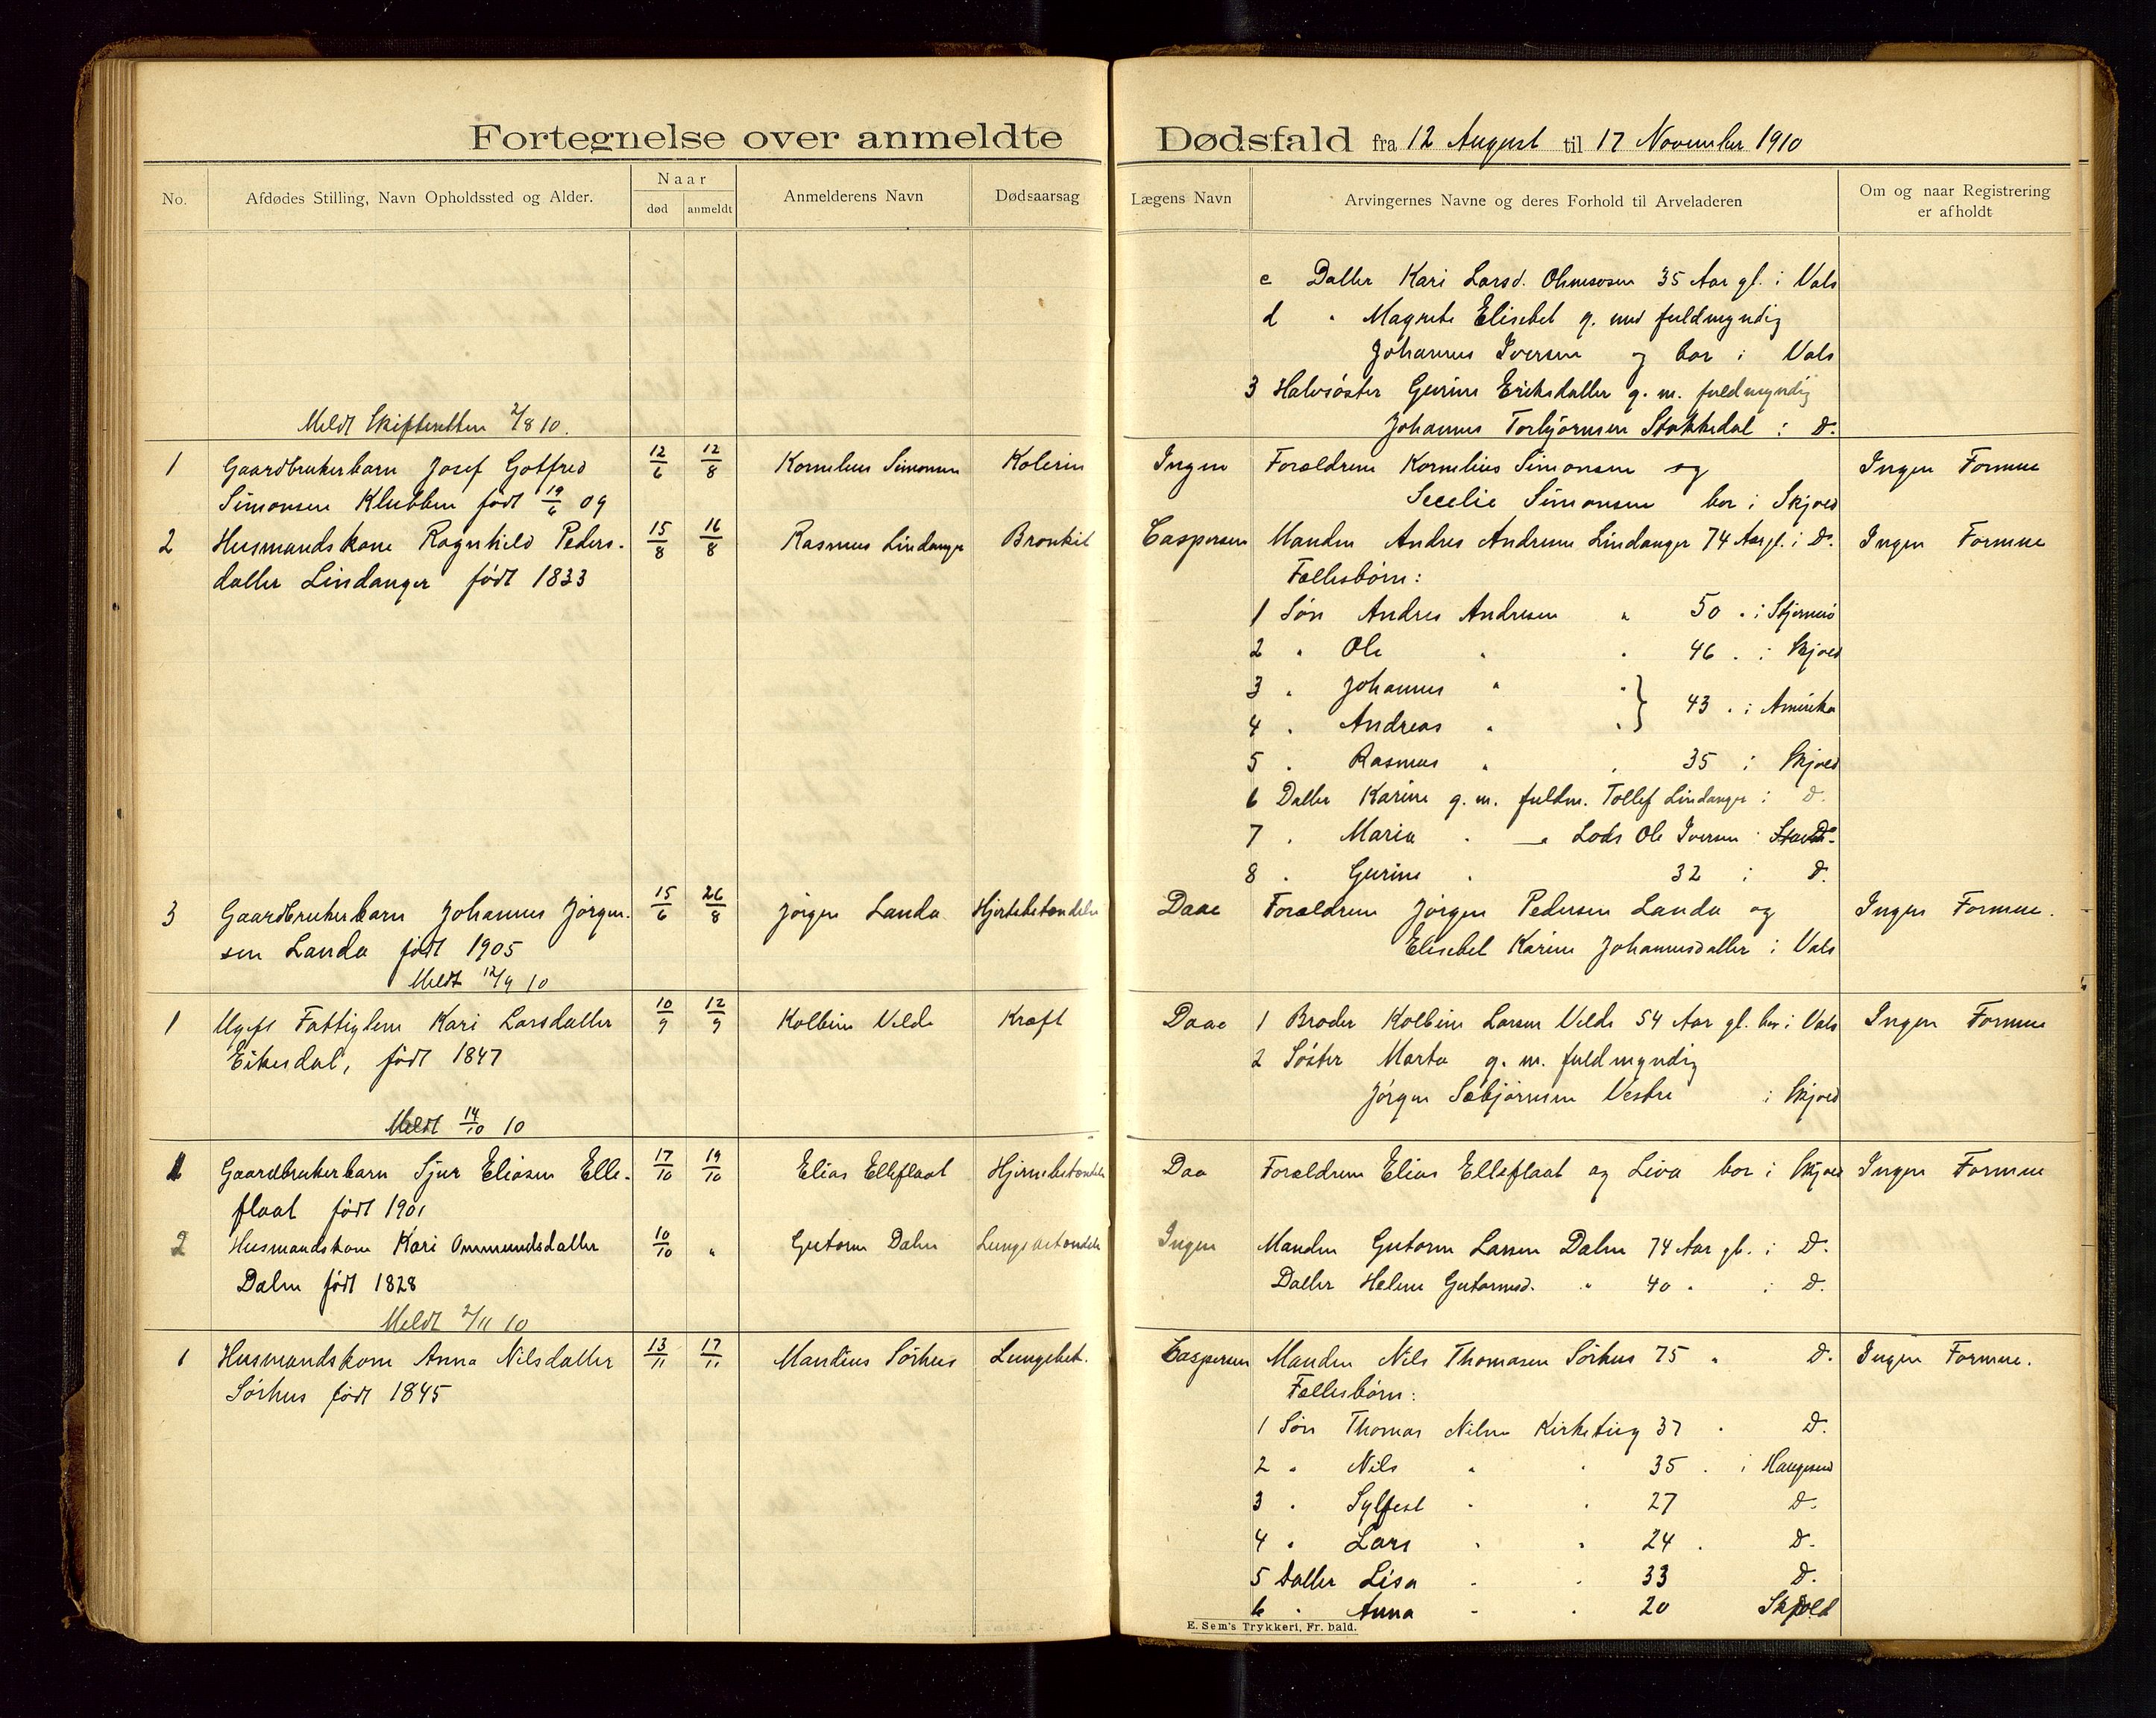 Fortegnelse over anmeldte Dødsfald fra 12 August til 17 November 1910
No. Afdødes Stilling, Navn Opholdssted og Alder. Naar død anmeldt Anmelderens Navn Dødsaarsag Lægens Navn Arvingernes Navne og deres Forhold til Arveladeren Om og naar Registrering er afholdt
c Datter Kari Larsd. 35 Aar gl. i Vats
d " Magrete Elisebet g. med fuldmyndig
Johannes Iversen og bor i Vats
3 Halvsøster Gurine Eriksdatter g. m. fuldmyndig
Meldt Skifteretten 2/8 10.
Johannes Torbjørnsen Stakkedal i D.
1 Gaardbrukerbarn Josef Gotfred 12/6 12/8 Kornelius Simonsen Kolerin Ingen Forældrene Kornelius Simonsen og Ingen Formue
Simonsen Klubben født 19/6 09 Secelie Simonsen bor i Skjold
2 Husmandskone Ragnhild Peders- 15/8 16/8 Rasmus Lindanger Bronkit Caspersen Manden Andres Andresen Lindanger 74 Aar gl. i D. Ingen Formue
datter Lindanger født 1833 Fællesbørn:
1 Søn Andres Andresen " 50 " i Stjernerø
2 " Ole " " 46 " i Skjold
3 " Johannes " "
} 43 " i Amerika
4 " Andreas " "
5 " Rasmus " " 35 i Skjold
6 Datter Karine g. m. fuldm. Tollef Lindanger i D.
7 " Maria " — " Lods Ole Iversen i D.
8 " Gurine " 32 i D.
3 Gaardbrukerbarn Johannes Jørgen- 15/6 26/8 Jørgen Landa Hjertebetændelse Daae Forældrene Jørgen Pedersen Landa og Ingen Formue.
sen Landa født 1905 Elisebet Karine Johannesdatter i Vats
Meldt 12/9 10
1 Ugift Fattiglem Kari Larsdatter 10/9 12/9 Kolbein Velde Kræft Daae 1 Broder Kolbein Larsen Velde 54 Aar gl. bor i Vats Ingen Formue
Eikesdal, født 1847 2 Søster Marta g. m. fuldmyndig
Jørgen Sebjørnsen Vestre i Skjold
Meldt 14/10 10
1 Gaardbrukerbarn Sjur Eliasen Elle- 17/10 19/10 Elias Elleflaat Hjernebetændelse Daa Forældrene Elias Elleflaat og Liva bor i Skjold Ingen Formue
flaat født 1901
2 Husmandskone Kari Ommundsdatter 10/10 " Gutorm Dalen Lungebetændelse Ingen Manden Gutorm Larsen Dalen 74 Aar gl. i D.
Dalen født 1828 Datter Helene Gutormsd. " 40 " i D.
Meldt 2/11 10
1 Husmandskone Anna Nilsdatter 13/11 17/11 Mandius Sørhus Lungebet. Caspersen Manden Nils Thomasen Sørhus 75 " D. Ingen Formue.
Sørhus født 1845 Fællesbørn:
1 Søn Thomas Nilsen Kirketeig 37 " D.
2 " Nils " " 35 " i Haugesund
3 " Sylfest " " 27 D.
4 " Lars " " 24 " D.
5 Datter Lisa " " 33 D.
6 " Anna " " 20 Skjold
E. Sem's Trykkeri, Fr. hald.